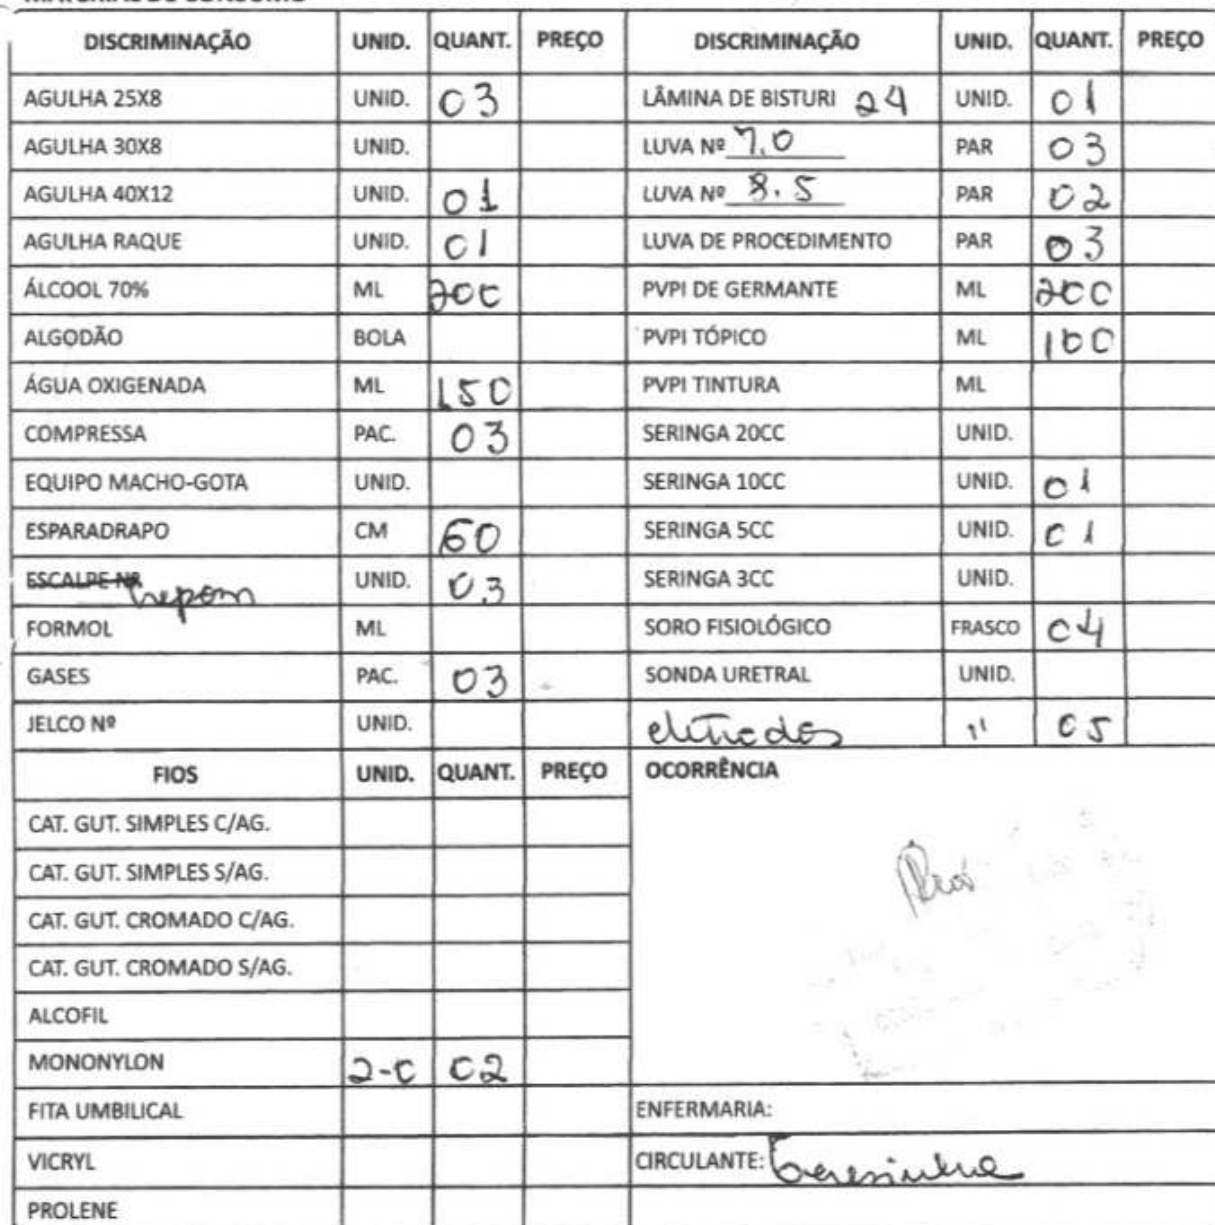 DISCRIMINAÇÃO UNID. QUANT. PREÇO DISCRIMINAÇÃO UNID. QUANT. PREÇO
AGULHA 25X8 UNID. 03 LÂMINA DE BISTURI 24 UNID. 01
AGULHA 30X8 UNID. LUVA Nº 7.0 PAR 03
AGULHA 40X12 UNID. 01 LUVA Nº 8.5 PAR 02
AGULHA RAQUE UNID. 01 LUVA DE PROCEDIMENTO PAR 03
ÁLCOOL 70% ML 200 PVPI DE GERMANTE ML 200
ALGODÃO BOLA PVPI TÓPICO ML 100
ÁGUA OXIGENADA ML 150 PVPI TINTURA ML
COMPRESSA PAC. 03 SERINGA 20CC UNID.
EQUIPO MACHO-GOTA UNID. SERINGA 10CC UNID. 01
ESPARADRAPO CM 60 SERINGA 5CC UNID. 01
ESCALPE Nº UNID. 03 SERINGA 3CC UNID.
FORMOL ML SORO FISIOLÓGICO FRASCO 04
GASES PAC. 03 SONDA URETRAL UNID.
JELCO Nº UNID. eletrodos " 05
FIOS UNID. QUANT. PREÇO OCORRÊNCIA
CAT. GUT. SIMPLES C/AG.
CAT. GUT. SIMPLES S/AG.
CAT. GUT. CROMADO C/AG.
CAT. GUT. CROMADO S/AG.
ALCOFIL
MONONYLON 2-0 02
FITA UMBILICAL ENFERMARIA:
VICRYL CIRCULANTE: Teresinha
PROLENE